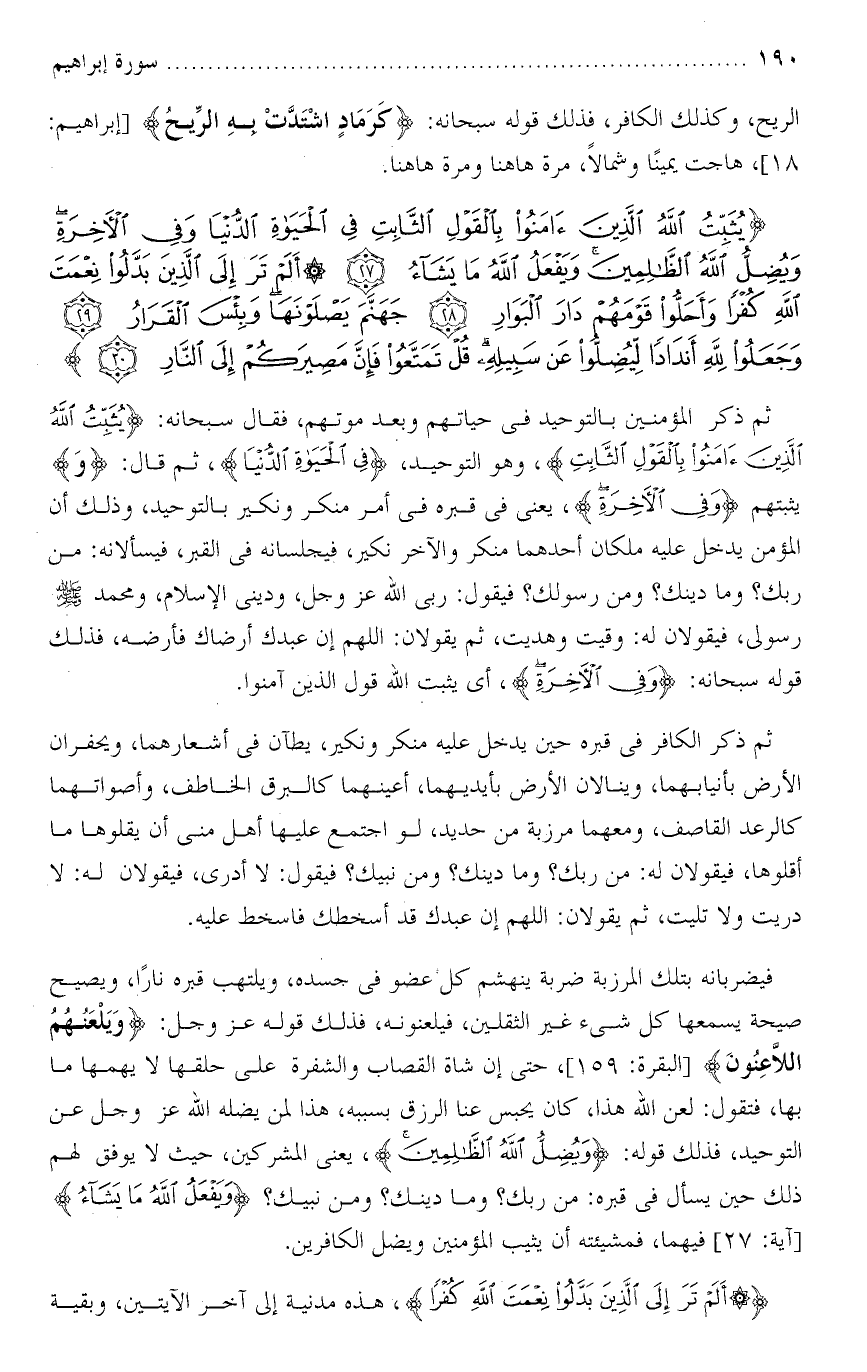 ١٩٠ ........................................................................ سورة إبراهيم
الريح، وكذلك الكافر، فذلك قوله سبحانه: ﴿كَرَمَادٍ اشْتَدَّتْ بِهِ الرِّيحُ﴾ [إبراهيم:
١٨]، هاجت يمينًا وشمالاً، مرة هاهنا ومرة هاهنا.
﴿يُثَبِّتُ ٱللَّهُ ٱلَّذِينَ ءَامَنُوا۟ بِٱلْقَوْلِ ٱلثَّابِتِ فِى ٱلْحَيَوٰةِ ٱلدُّنْيَا وَفِى ٱلْأَخِرَةِۖ
وَيُضِلُّ ٱللَّهُ ٱلظَّـٰلِمِينَۚ وَيَفْعَلُ ٱللَّهُ مَا يَشَآءُ ﴿٢٧﴾ ۞ أَلَمْ تَرَ إِلَى ٱلَّذِينَ بَدَّلُوا۟ نِعْمَتَ
ٱللَّهِ كُفْرًا وَأَحَلُّوا۟ قَوْمَهُمْ دَارَ ٱلْبَوَارِ ﴿٢٨﴾ جَهَنَّمَ يَصْلَوْنَهَاۖ وَبِئْسَ ٱلْقَرَارُ ﴿٢٩﴾
وَجَعَلُوا۟ لِلَّهِ أَندَادًا لِّيُضِلُّوا۟ عَن سَبِيلِهِۦۗ قُلْ تَمَتَّعُوا۟ فَإِنَّ مَصِيرَكُمْ إِلَى ٱلنَّارِ ﴿٣٠﴾ ﴾
ثم ذكر المؤمنين بالتوحيد فى حياتهم وبعد موتهم، فقال سبحانه: ﴿يُثَبِّتُ ٱللَّهُ
ٱلَّذِينَ ءَامَنُوا۟ بِٱلْقَوْلِ ٱلثَّابِتِ﴾، وهو التوحيد، ﴿فِى ٱلْحَيَوٰةِ ٱلدُّنْيَا﴾، ثم قال: ﴿وَ﴾
يثبتهم ﴿وَفِى ٱلْأَخِرَةِۖ﴾، يعنى فى قبره فى أمر منكر ونكير بالتوحيد، وذلك أن
المؤمن يدخل عليه ملكان أحدهما منكر والآخر نكير، فيجلسانه فى القبر، فيسألانه: من
ربك؟ وما دينك؟ ومن رسولك؟ فيقول: ربى الله عز وجل، ودينى الإسلام، ومحمد ﷺ
رسولى، فيقولان له: وقيت وهديت، ثم يقولان: اللهم إن عبدك أرضاك فأرضه، فذلك
قوله سبحانه: ﴿وَفِى ٱلْأَخِرَةِۖ﴾، أى يثبت الله قول الذين آمنوا.
ثم ذكر الكافر فى قبره حين يدخل عليه منكر ونكير، يطآن فى أشعارهما، ويحفران
الأرض بأنيابهما، وينالان الأرض بأيديهما، أعينهما كالبرق الخاطف، وأصواتهما
كالرعد القاصف، ومعهما مرزبة من حديد، لو اجتمع عليها أهل منى أن يقلوها ما
أقلوها، فيقولان له: من ربك؟ وما دينك؟ ومن نبيك؟ فيقول: لا أدرى، فيقولان له: لا
دريت ولا تليت، ثم يقولان: اللهم إن عبدك قد أسخطك فاسخط عليه.
فيضربانه بتلك المرزبة ضربة ينهشم كل عضو فى جسده، ويلتهب قبره نارًا، ويصيح
صيحة يسمعها كل شىء غير الثقلين، فيلعنونه، فذلك قوله عز وجل: ﴿وَيَلْعَنُهُمُ
اللاَّعِنُونَ﴾ [البقرة: ١٥٩]، حتى إن شاة القصاب والشفرة على حلقها لا يهمها ما
بها، فتقول: لعن الله هذا، كان يحبس عنا الرزق بسببه، هذا لمن يضله الله عز وجل عن
التوحيد، فذلك قوله: ﴿وَيُضِلُّ ٱللَّهُ ٱلظَّـٰلِمِينَۚ﴾، يعنى المشركين، حيث لا يوفق لهم
ذلك حين يسأل فى قبره: من ربك؟ وما دينك؟ ومن نبيك؟ ﴿وَيَفْعَلُ ٱللَّهُ مَا يَشَآءُ﴾
[آية: ٢٧] فيهما، فمشيئته أن يثيب المؤمنين ويضل الكافرين.
﴿۞ أَلَمْ تَرَ إِلَى ٱلَّذِينَ بَدَّلُوا۟ نِعْمَتَ ٱللَّهِ كُفْرًا﴾، هذه مدنية إلى آخر الآيتين، وبقية